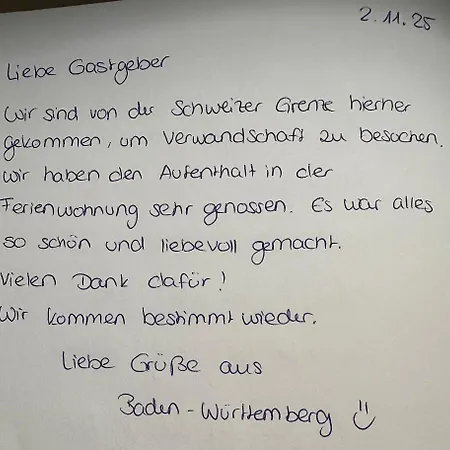 2.11.25
Liebe Gastgeber
Wir sind von der Schweizer Grenze hierher
gekommen, um Verwandschaft zu besuchen.
Wir haben den Aufenthalt in der
Ferienwohnung sehr genossen. Es war alles
so schön und liebevoll gemacht.
Vielen Dank dafür!
Wir kommen bestimmt wieder.
Liebe Grüße aus
Baden-Württemberg